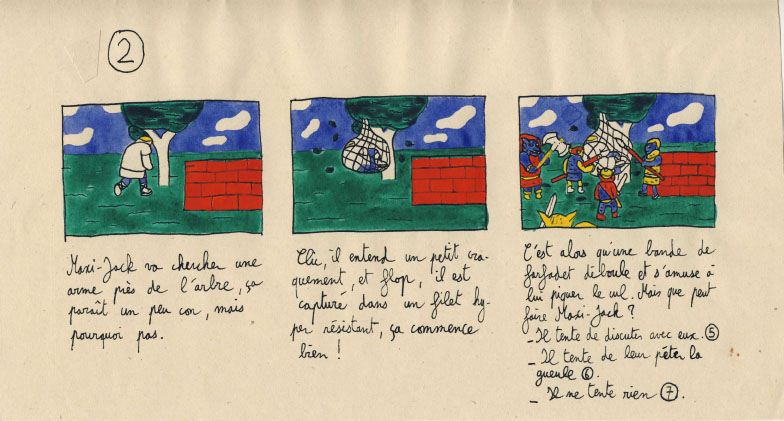 2
Maxi-Jack va chercher une
arme près de l'arbre, ça
paraît un peu con, mais
pourquoi pas.
Clic, il entend un petit cra-
quement, et flop, il est
capturé dans un filet hy-
per résistant, ça commence
bien !
C'est alors qu'une bande de
farfadet déboule et s'amuse à
lui piquer le cul. Mais que peut
faire Maxi-Jack ?
- Il tente de discuter avec eux. 5
- Il tente de leur péter la
gueule 6.
- Il ne tente rien 7.